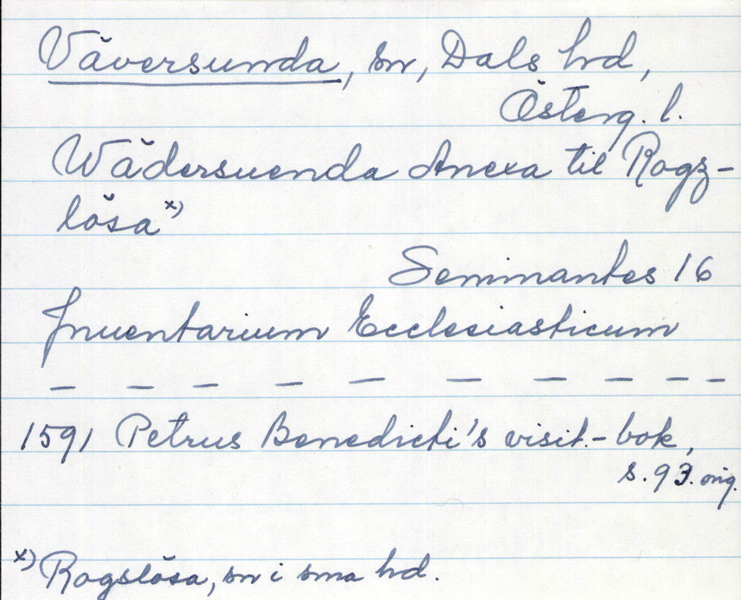 Väversunda, sn, Dals hd,
Österg. l.
Wädersuenda Anexa til Rogz-
lösa x)
Seminantes 16
Inuentarium Ecclesiasticum
— — — — — — — — — —
1591 Petrus Benedicti's visit.-bok,
s. 93. orig.
x) Rogslösa, sn i sma hd.